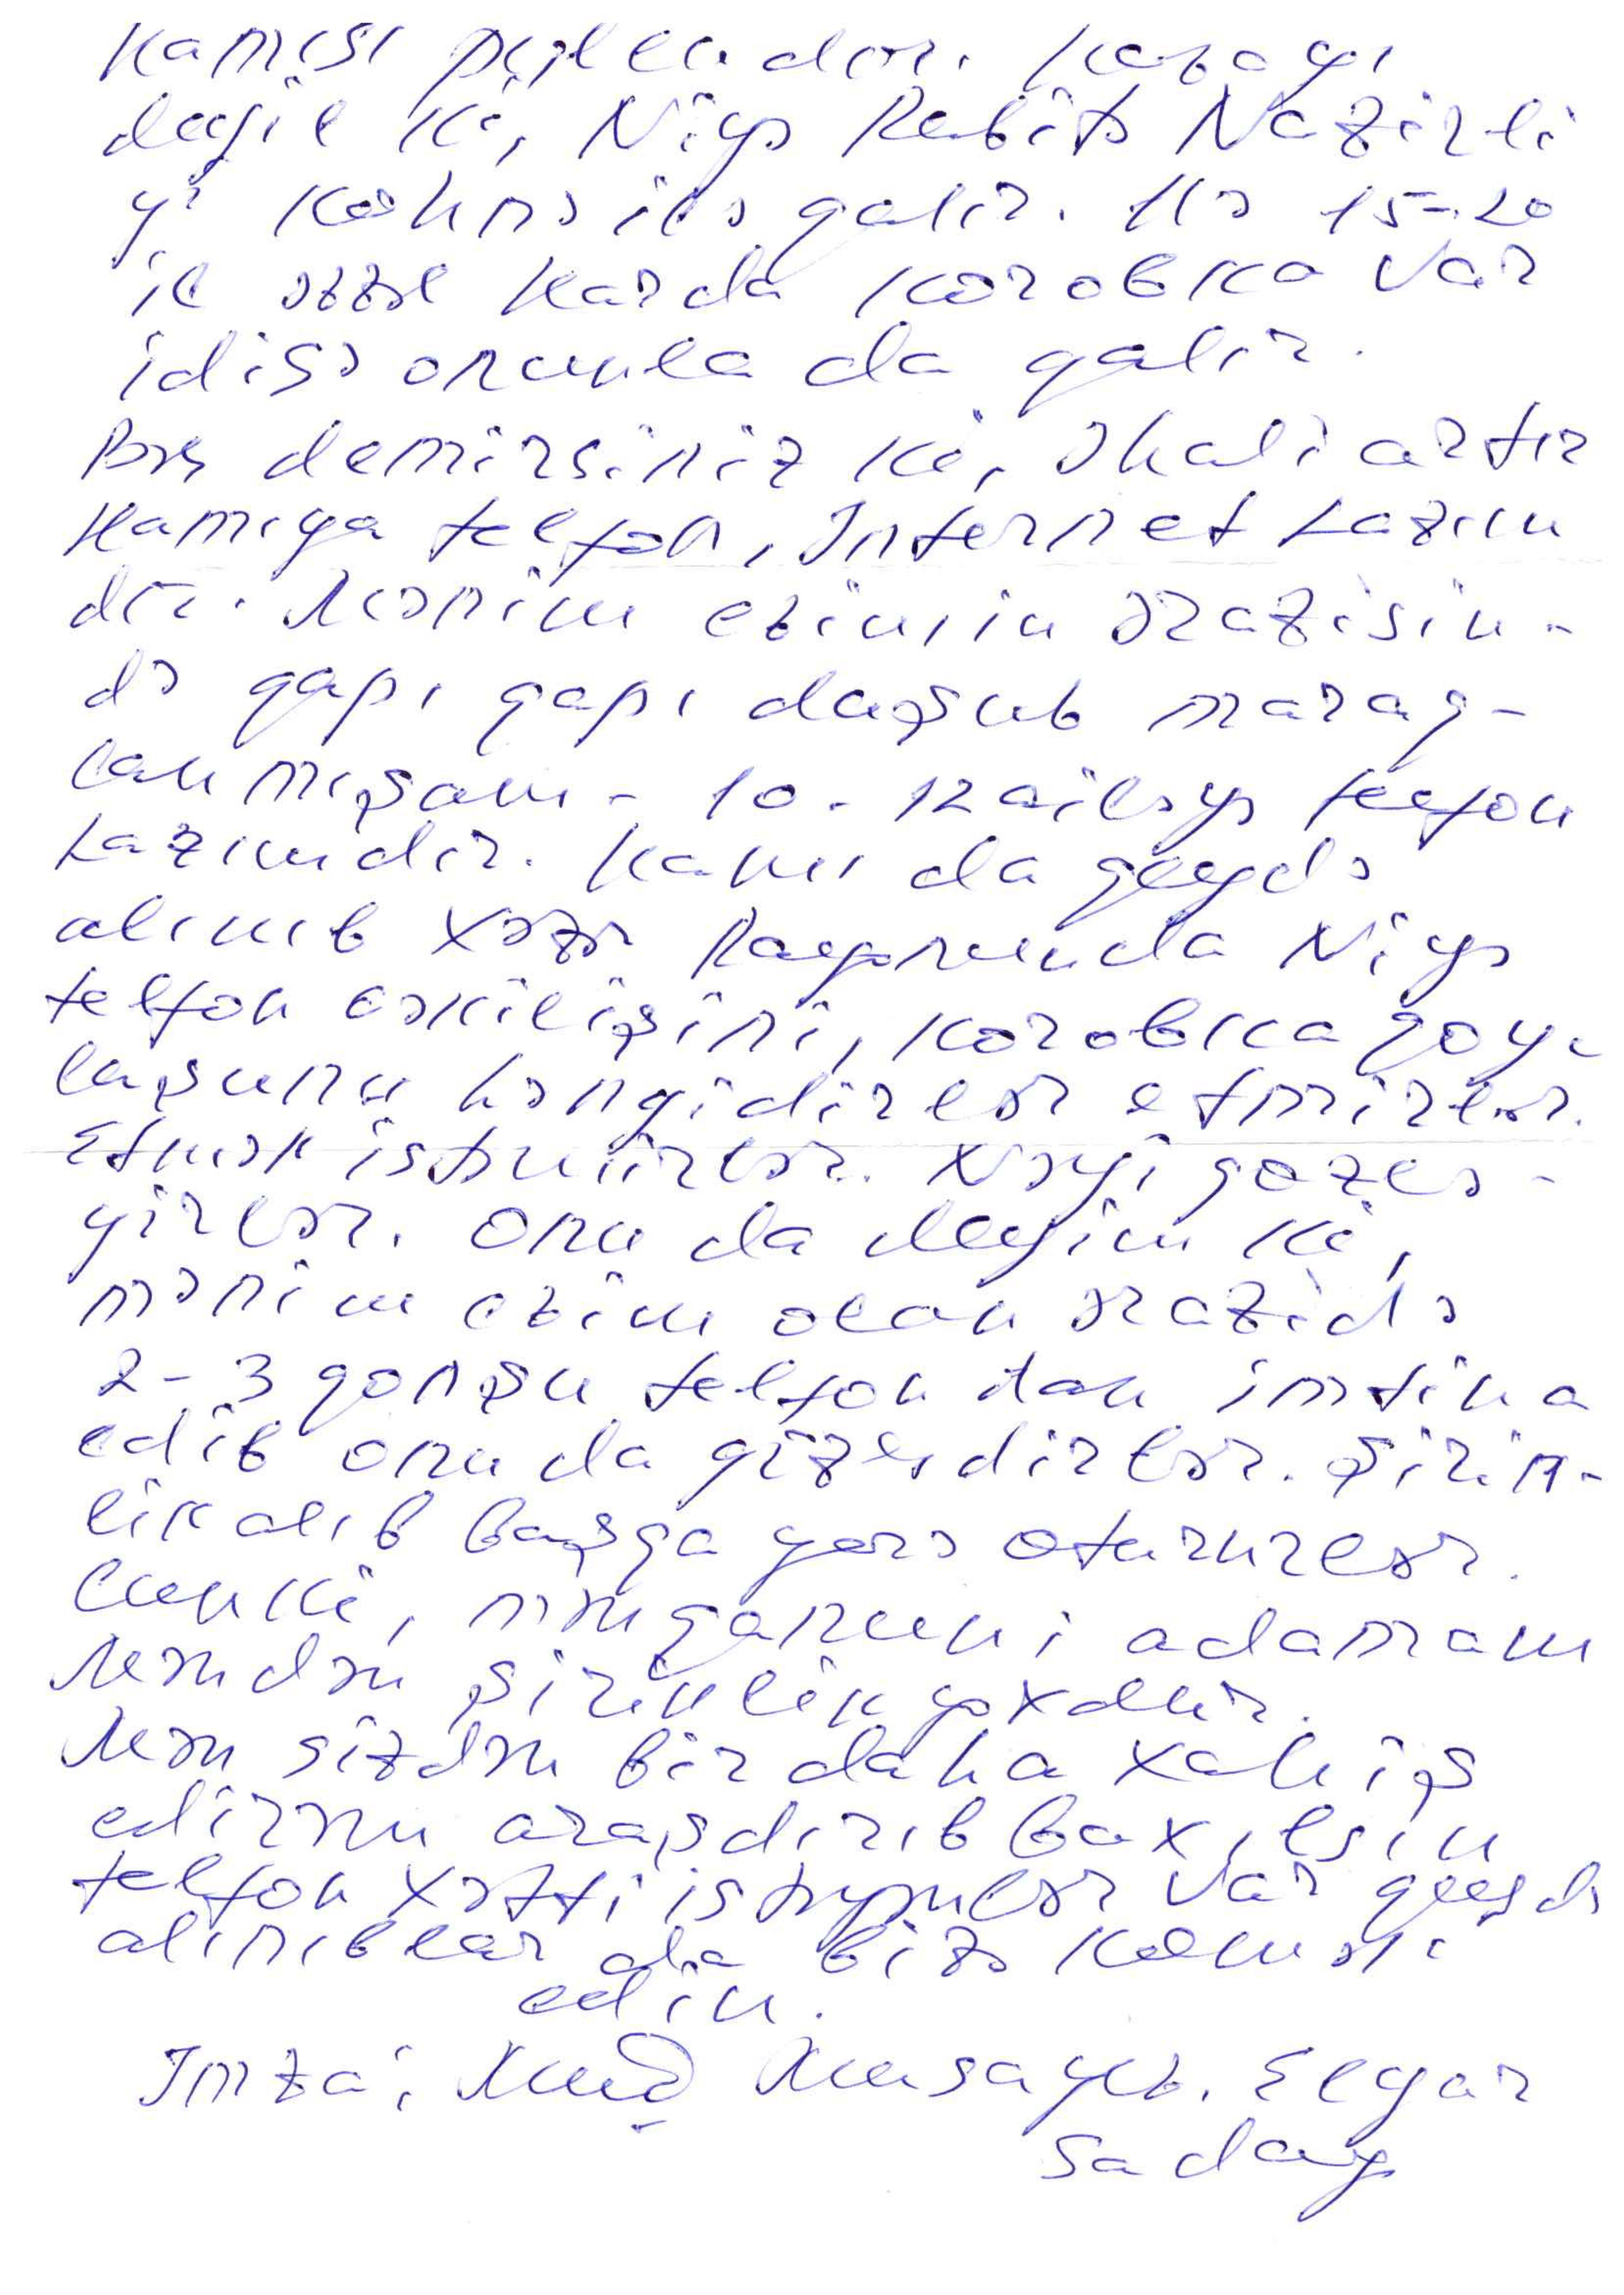 Hamısı pulladır. Hesabayı
deyil ki, Niyə Rabitə Nazirli
yi köhnə ilə qalır. Nə 15-20
il əzzəl harda korobka var
idisə onunla da qalır.
Bəs demirsiniz ki, əhali artır
Hamıya telfon, İnternet Lazım
dır. Mənim evimin ərazisin-
də qapı qapı düşüb maraq-
lanmışam - 10-12 ailəyə telfon
Lazımdır. Hamı da qeydə
alınıb Xəzər Rayonunda Niyə
telfon çəkilişini, korobka qoyu-
laşunu həngidirlər etmirlər.
Etmək istəmirlər. Nəyi gözlə-
yirlər. Onu da deyim ki,
mənim evim olan ərazidə
2-3 qonşu telfon dan imtina
edib onu da gizlədirlər. Şirin-
lik alıb başqa yerə otururlar.
Çünki, mən qanuni adamam
Məndən şirinlik yoxdur.
Mən sizdən bir daha xahiş
edirəm araşdırıb baxılsın
telfon xətti istəyənlər var qeydə
alınıblar da bizə kömək
edin.
İmza: Musayev. Elyar
Saday